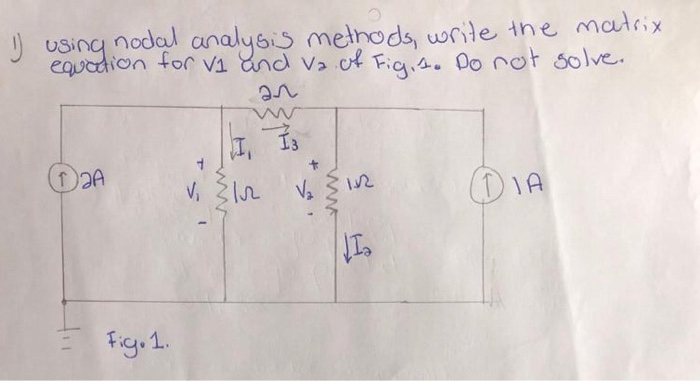 1) using nodal analysis methods, write the matrix
equation for V1 and V2 of Fig.1. Do not solve.
2Ω
I1 I3
+ +
2A V1 1Ω V2 1Ω 1A
- -
I2
Fig.1.